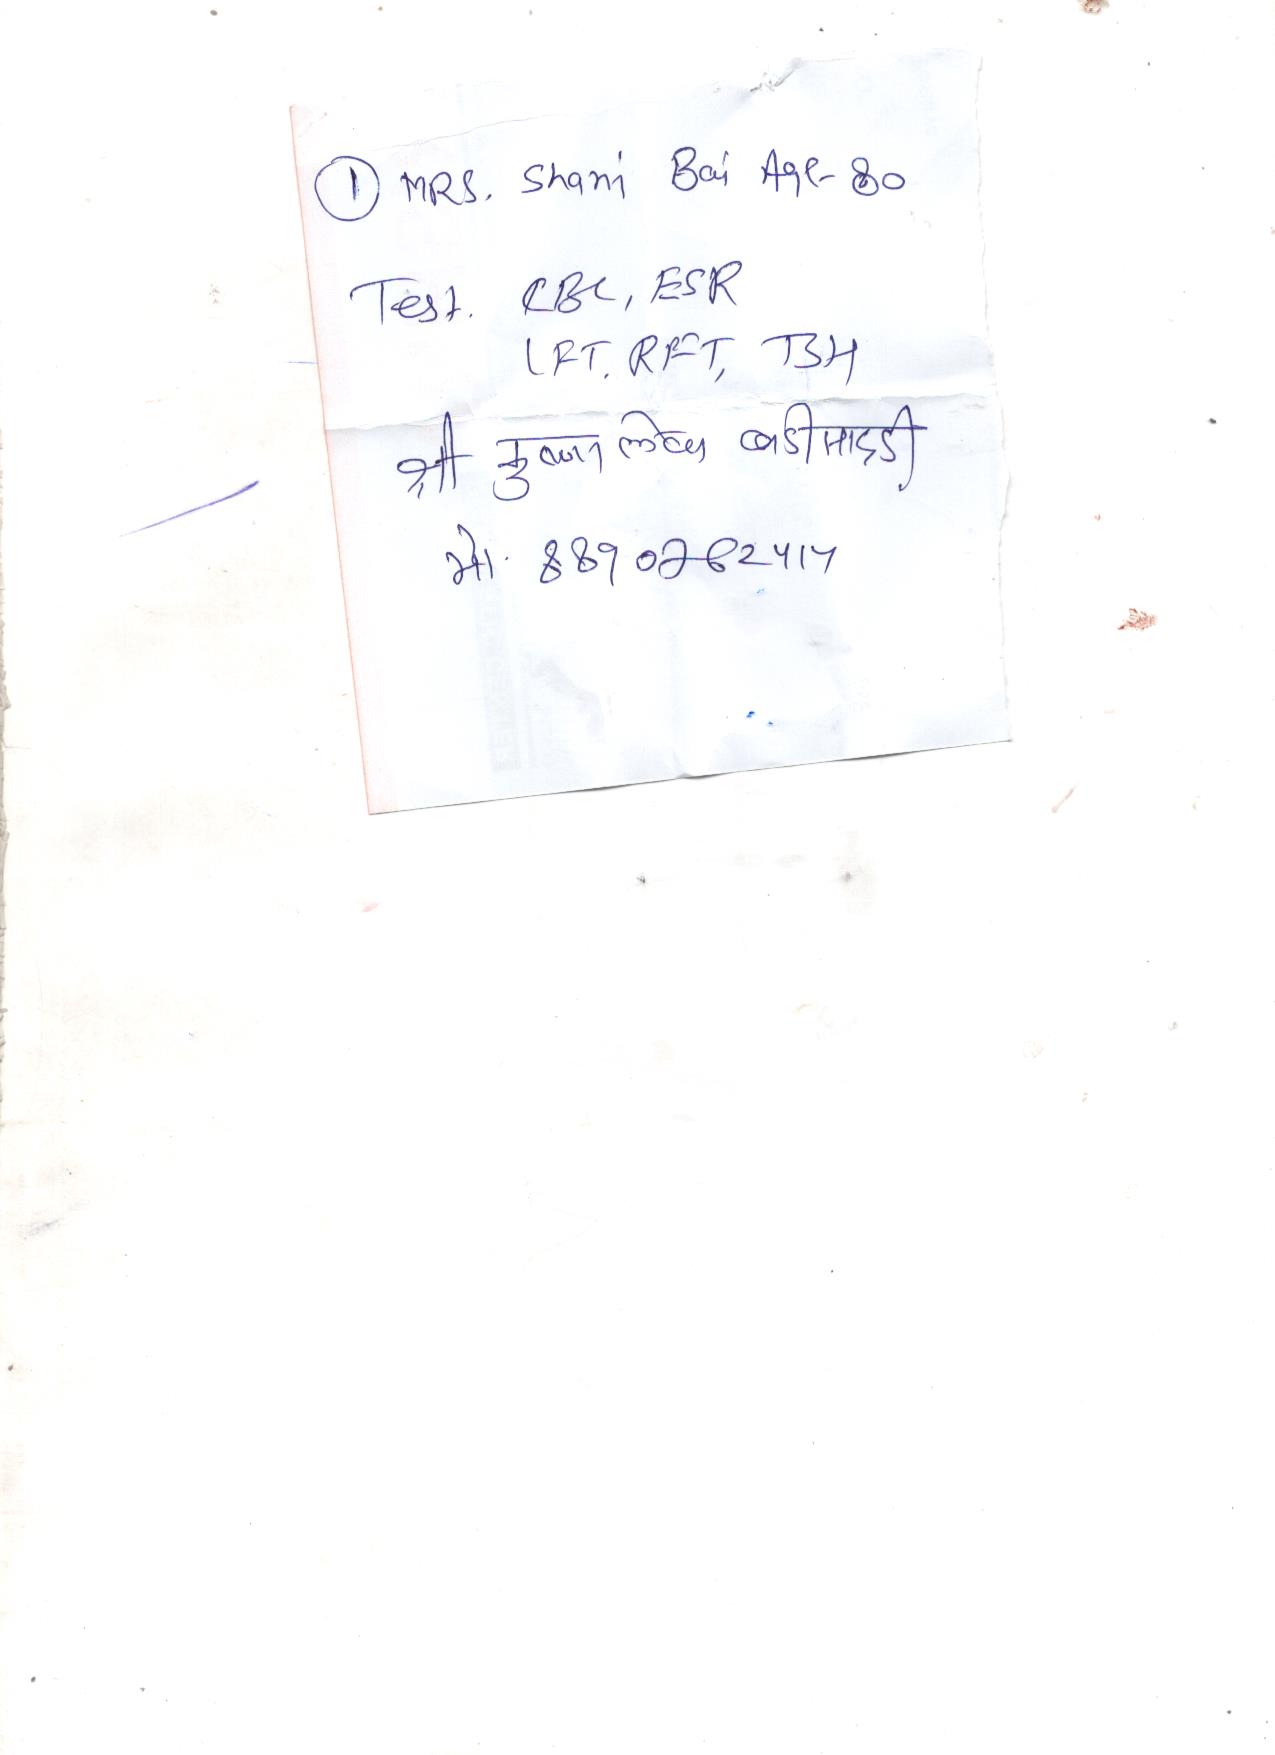 ① MRS. Shani Bai Age- 80
Test. CBC, ESR
LFT. RFT, TSH
श्री कृष्णा लेब बडीसादडी
मो. 8890262417